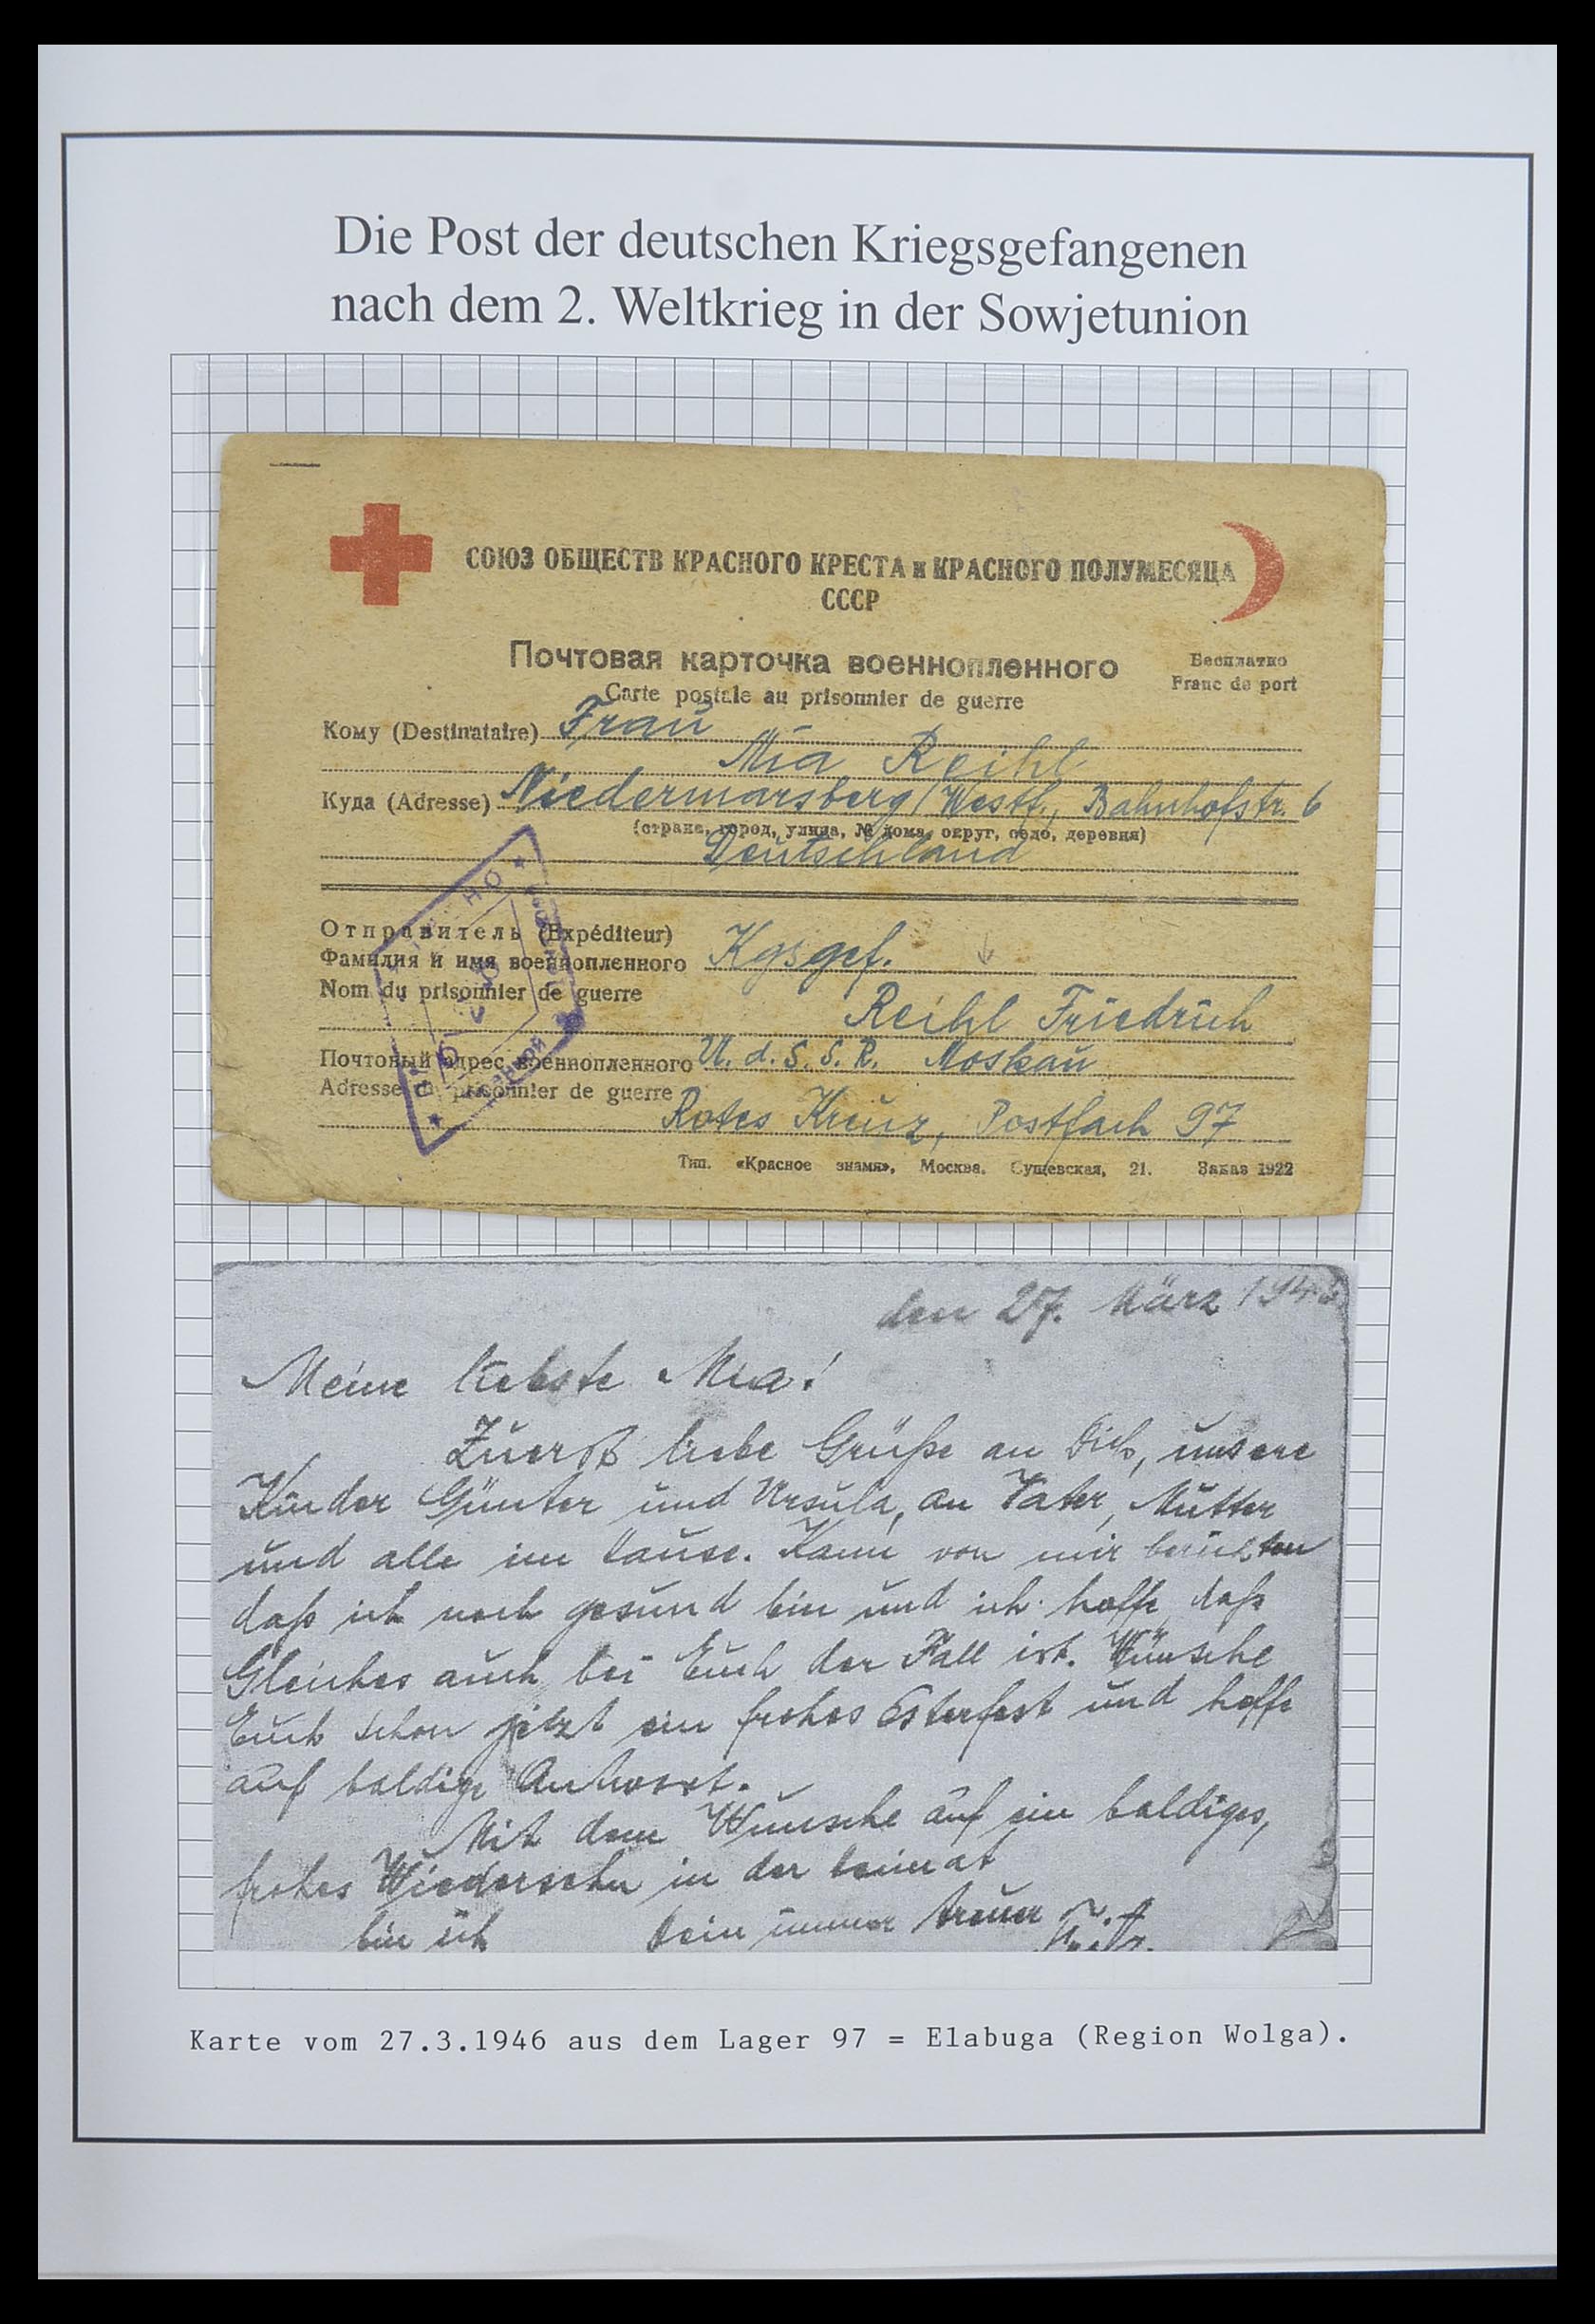 Die Post der deutschen Kriegsgefangenen
nach dem 2. Weltkrieg in der Sowjetunion
СОЮЗ ОБЩЕСТВ КРАСНОГО КРЕСТА и КРАСНОГО ПОЛУМЕСЯЦА
СССР
Почтовая карточка военнопленного
Бесплатно
Carte postale au prisonnier de guerre
Franc de port
Кому (Destinataire) Frau
Mia Reihl
Куда (Adresse) Niedermarsberg/Westf., Bahnhofstr. 6
(страна, город, улица, № дома, округ, село, деревня)
Deutschland
Отправитель (Expéditeur)
Фамилия и имя военнопленного Kgsgef.
Nom du prisonnier de guerre
Reihl Friedrich
Почтовый адрес военнопленного U. d. S. S. R. Moskau
Adresse du prisonnier de guerre
Rotes Kreuz, Postfach 97
Тип. «Красное знамя», Москва, Сущевская, 21. Заказ 1922
den 27. März 1946
Meine liebste Mia!
Zuerst liebe Grüße an Dich, unsere
Kinder Günter und Ursula, an Vater, Mutter
und alle im Hause. Kann von mir berichten
daß ich noch gesund bin und ich hoffe daß
Gleiches auch bei Euch der Fall ist. Wünsche
Euch schon jetzt ein frohes Osterfest und hoffe
auf baldige Antwort.
Mit dem Wunsche auf ein baldiges,
frohes Wiedersehn in der Heimat
bin ich Dein immer treuer
Karte vom 27.3.1946 aus dem Lager 97 = Elabuga (Region Wolga).